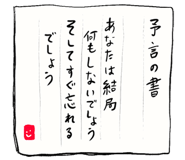 予言の書
あなたは結局
何もしないでしょう
そしてすぐ忘れる
でしょう